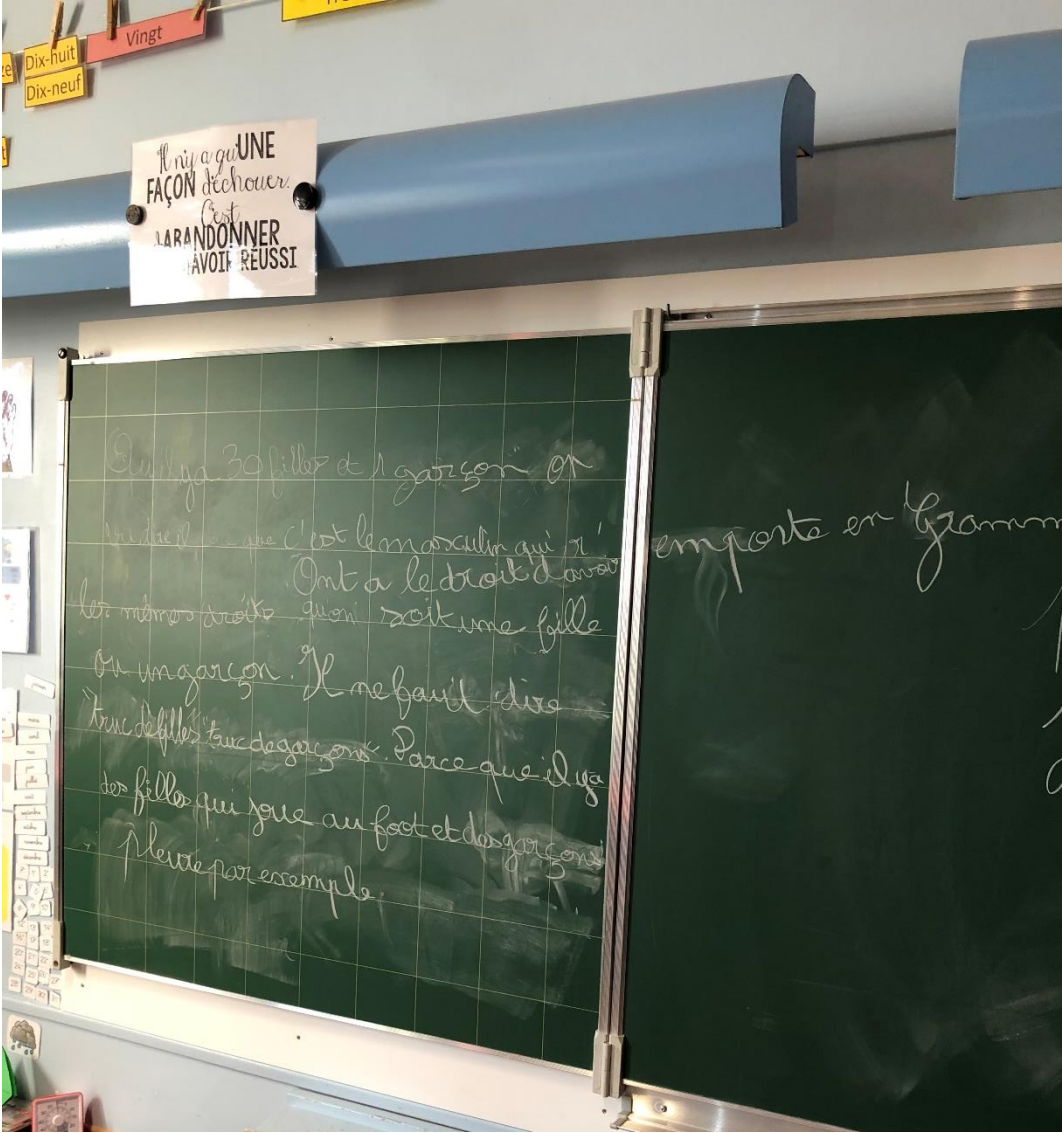 Vingt
Dix-huit
Dix-neuf
Il n'y a qu'UNE
FAÇON d'échouer.
C'est
ABANDONNER
AVOIR RÉUSSI
il y a 30 filles et 1 garçon on
que c'est le masculin qui emporte en Gramm
Ont a le droit d'avoir
les mêmes droits quon soit une fille
ou un garçon. Il ne faut dire
"truc de filles" "truc de garçons". Parce que il y a
des filles qui joue au foot et des garçons
pleure par exemple.